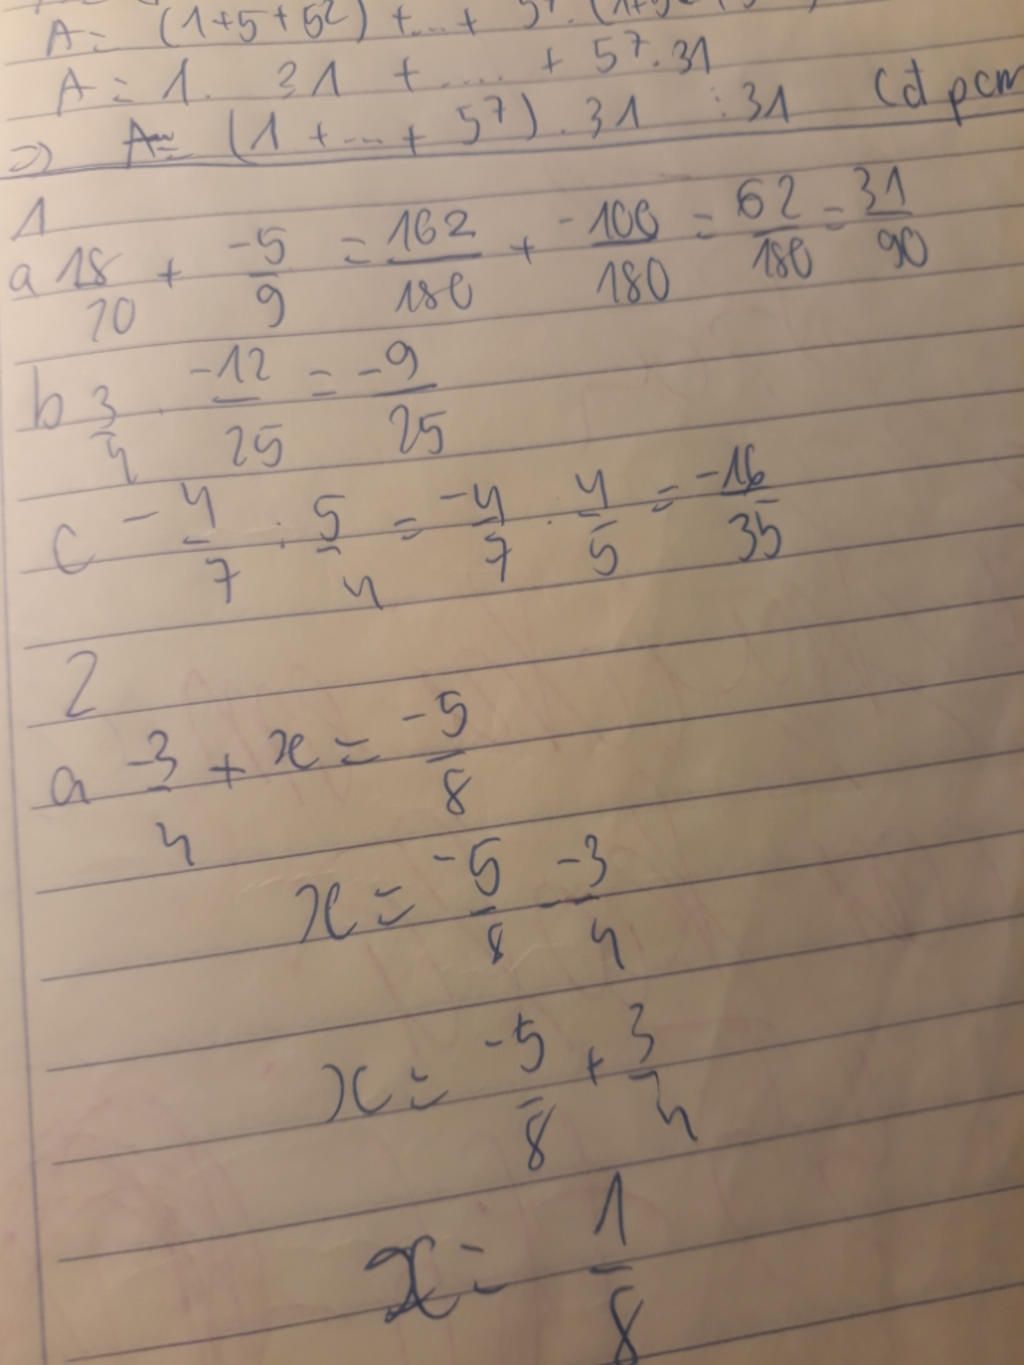 A = (1+5+5²) + ... +
A = 1. 31 + .... + 5⁷.31
=> A = (1 + ... + 5⁷) . 31 ⋮ 31 (dpcm
1
a 18/20 + -5/9 = 162/180 + -100/180 = 62/180 = 31/90
b 3/4 . -12/25 = -9/25
c -4/7 : 5/4 = -4/7 . 4/5 = -16/35
2
a -3/4 + x = -5/8
x = -5/8 - -3/4
x = -5/8 + 3/4
x = 1/8